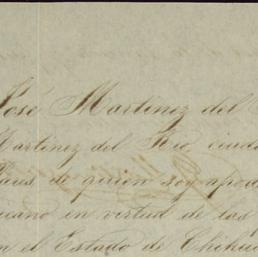 José Martinez del
Martinez del Rio, ciuda
de quien soy apod
cano en virtud de las
en el Estado de Chihua